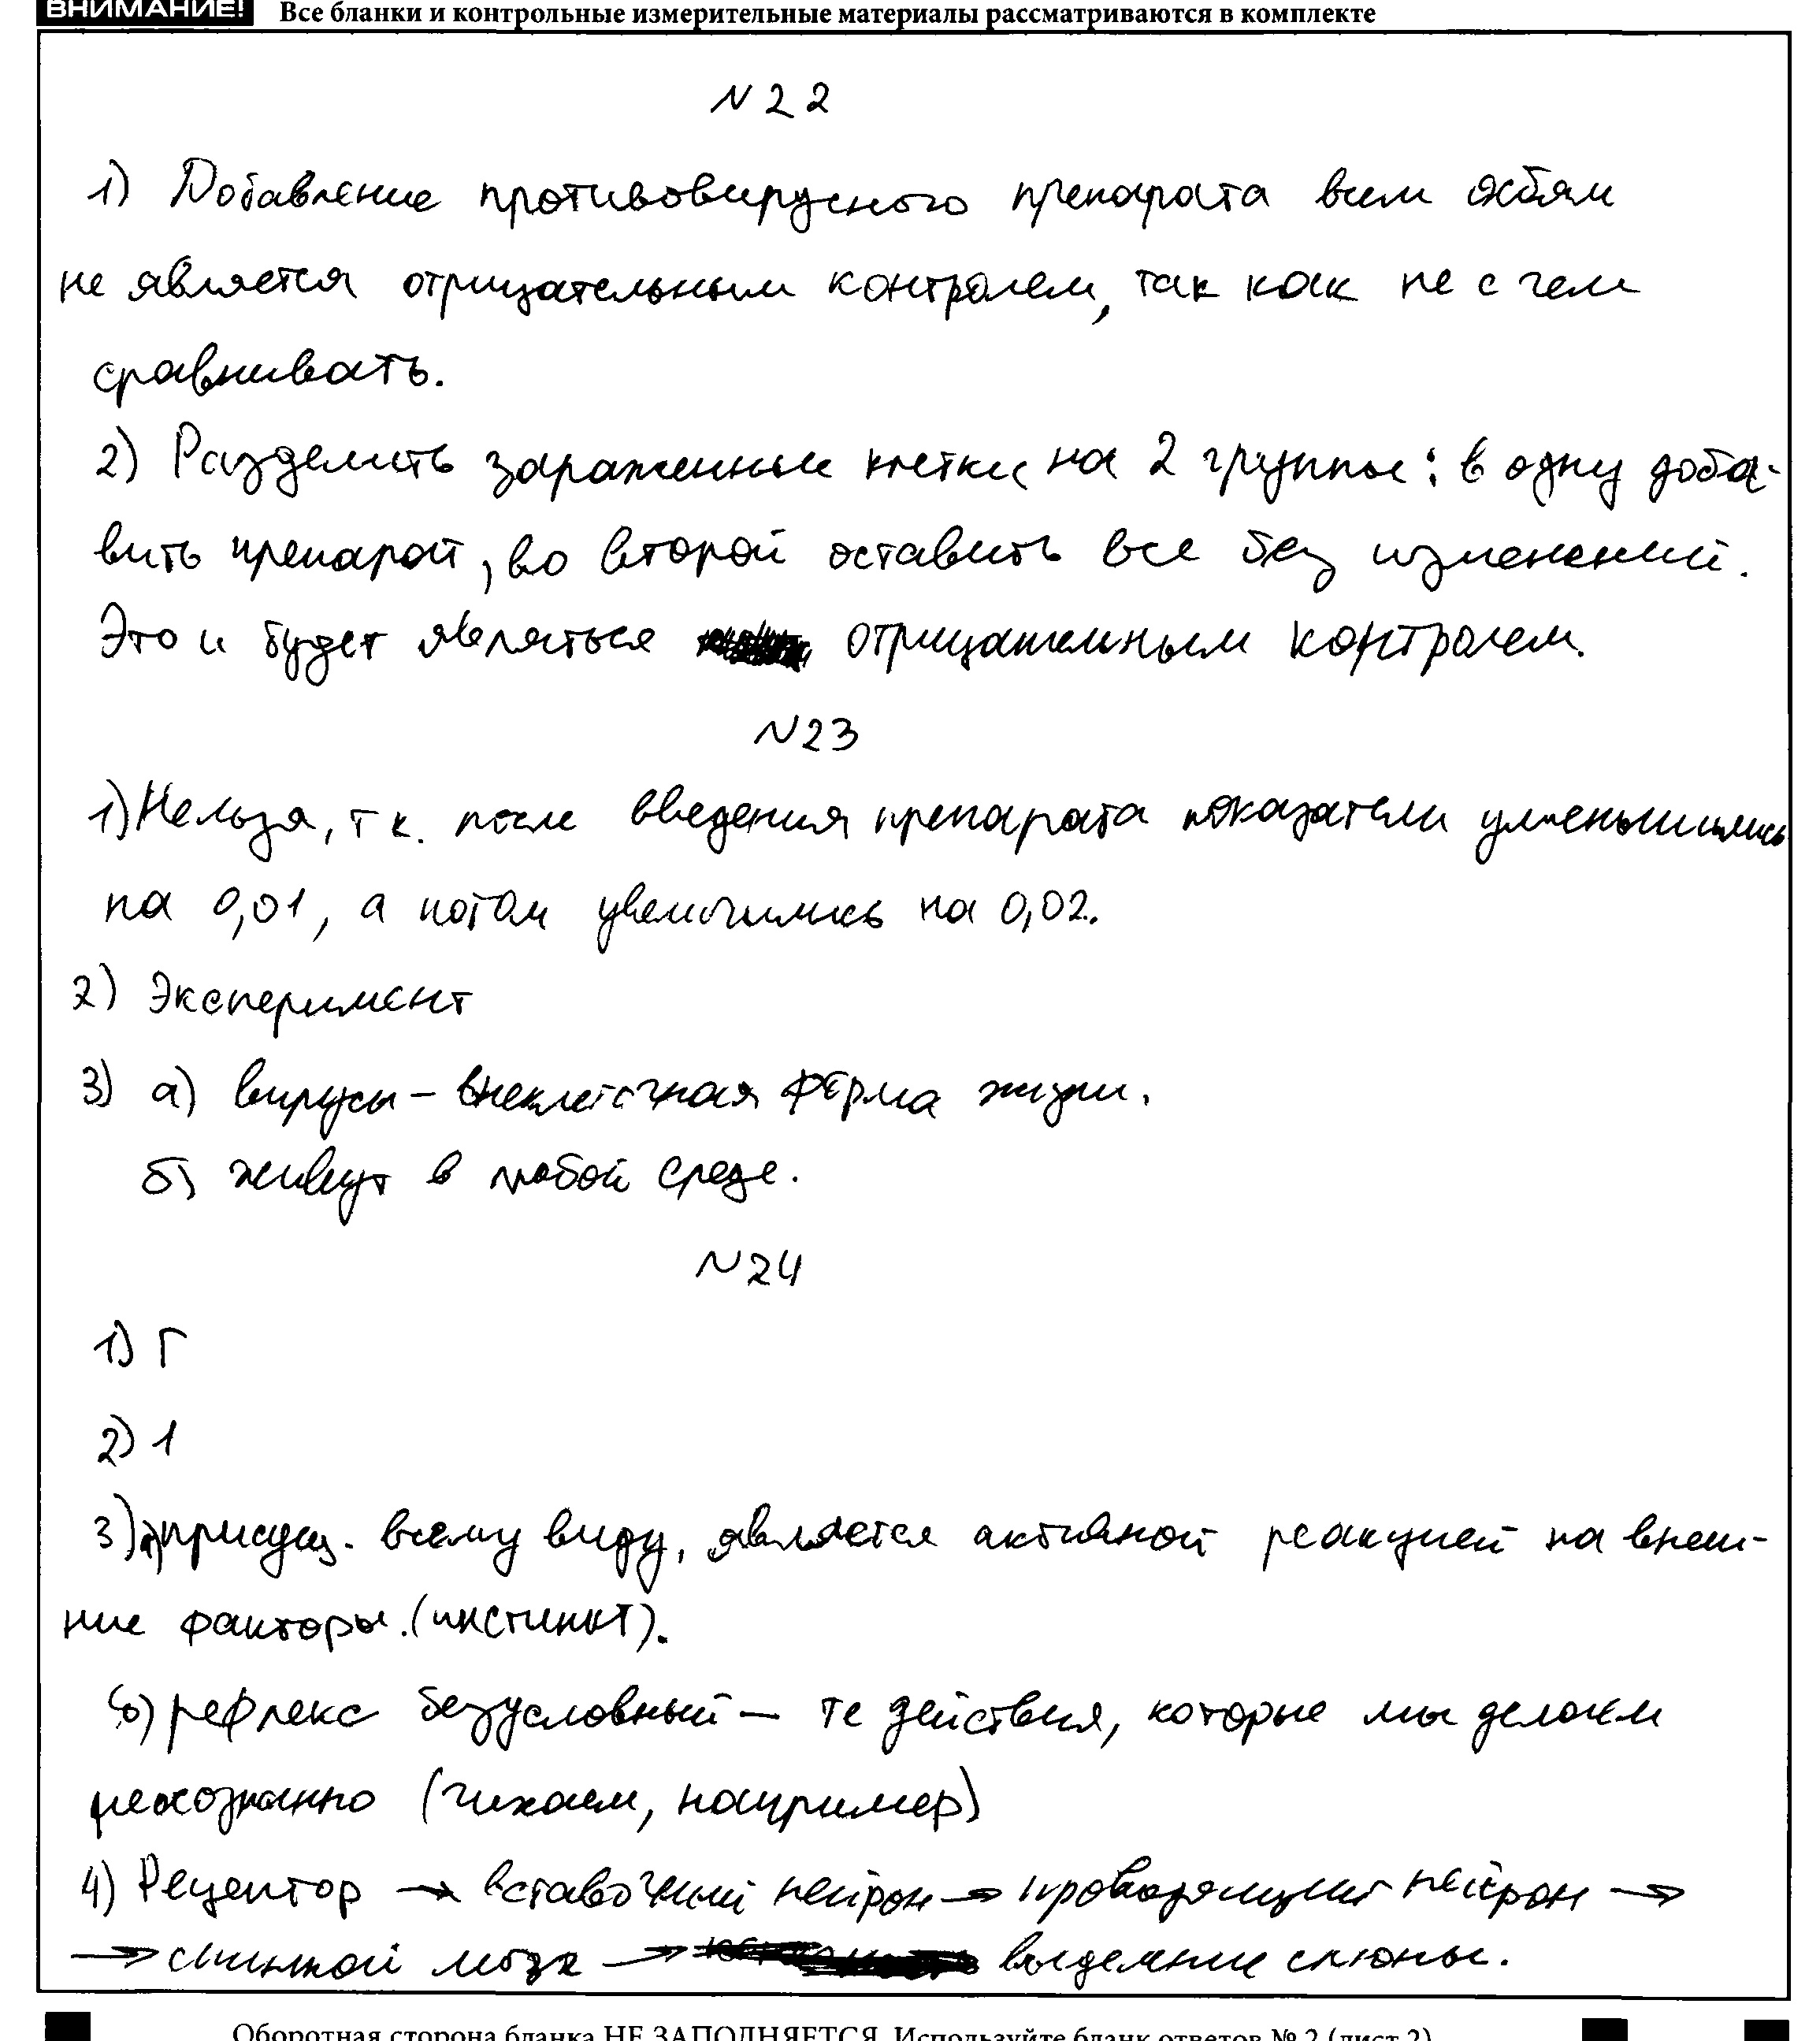 ВНИМАНИЕ! Все бланки и контрольные измерительные материалы рассматриваются в комплекте
N 22
1) Добавление противовирусного препарата всем особям
не является отрицательным контролем, так как не с чем
сравнивать.
2) Разделить зараженные клетки на 2 группы: в одну доба-
вить препарат, во второй оставить все без изменений.
Это и будет являться отрицательным контролем.
N23
1) Нельзя, т к. после введения препарата показатели уменьшились
на 0,01, а потом увеличились на 0,02.
2) Эксперимент
3) а) вирусы – внеклеточная форма жизни.
б) живут в любой среде.
N24
1) Г
2) 1
3) а) присущ. всему виду, является активной реакцией на внеш-
ние факторы. (инстинкт).
б) рефлекс безусловный – те действия, которые мы делаем
неосознанно (чихаем, например)
4) Рецептор → вставочный нейрон → проводящий нейрон →
→ спинной мозг → выделение слюны.
Оборотная сторона бланка НЕ ЗАПОЛНЯЕТСЯ. Используйте бланк ответов № 2 (лист 2)